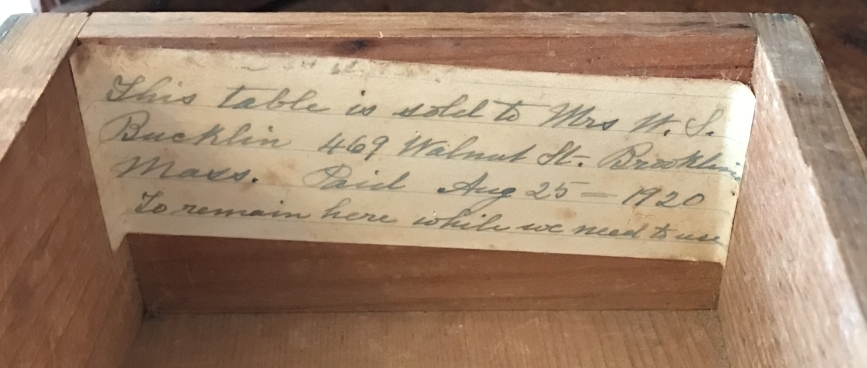 This table is sold to Mrs W. S.
Bucklin 469 Walnut St. Brooklin
Mass. Paid Aug 25 — 1920
To remain here while we need to use